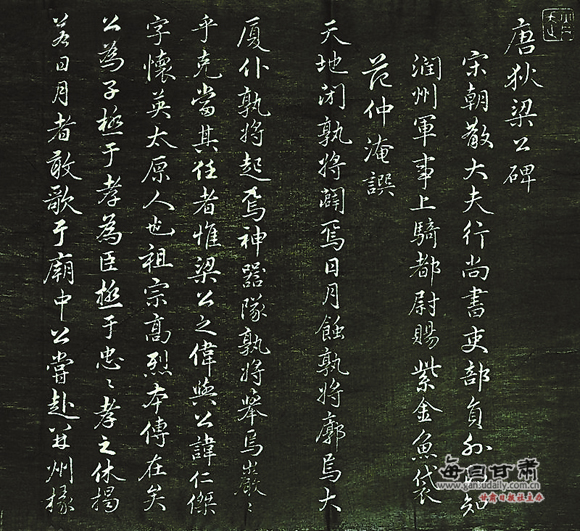 唐狄梁公碑
宋朝散大夫行尚書吏部員外郎知
潤州軍事上騎都尉賜紫金魚袋
范仲淹譔
天地閉孰將闢焉日月蝕孰將廓焉大
厦仆孰將起焉神器隊孰將舉焉巖〻
乎克當其任者惟梁公之偉與公諱仁傑
字懷英太原人也祖宗高烈本傳在矣
公為子極于孝為臣極于忠〻孝之休揭
若日月者敢歌于廟中公嘗赴并州掾
每日甘肃
www.gansudaily.com.cn
甘肃日报报业主办